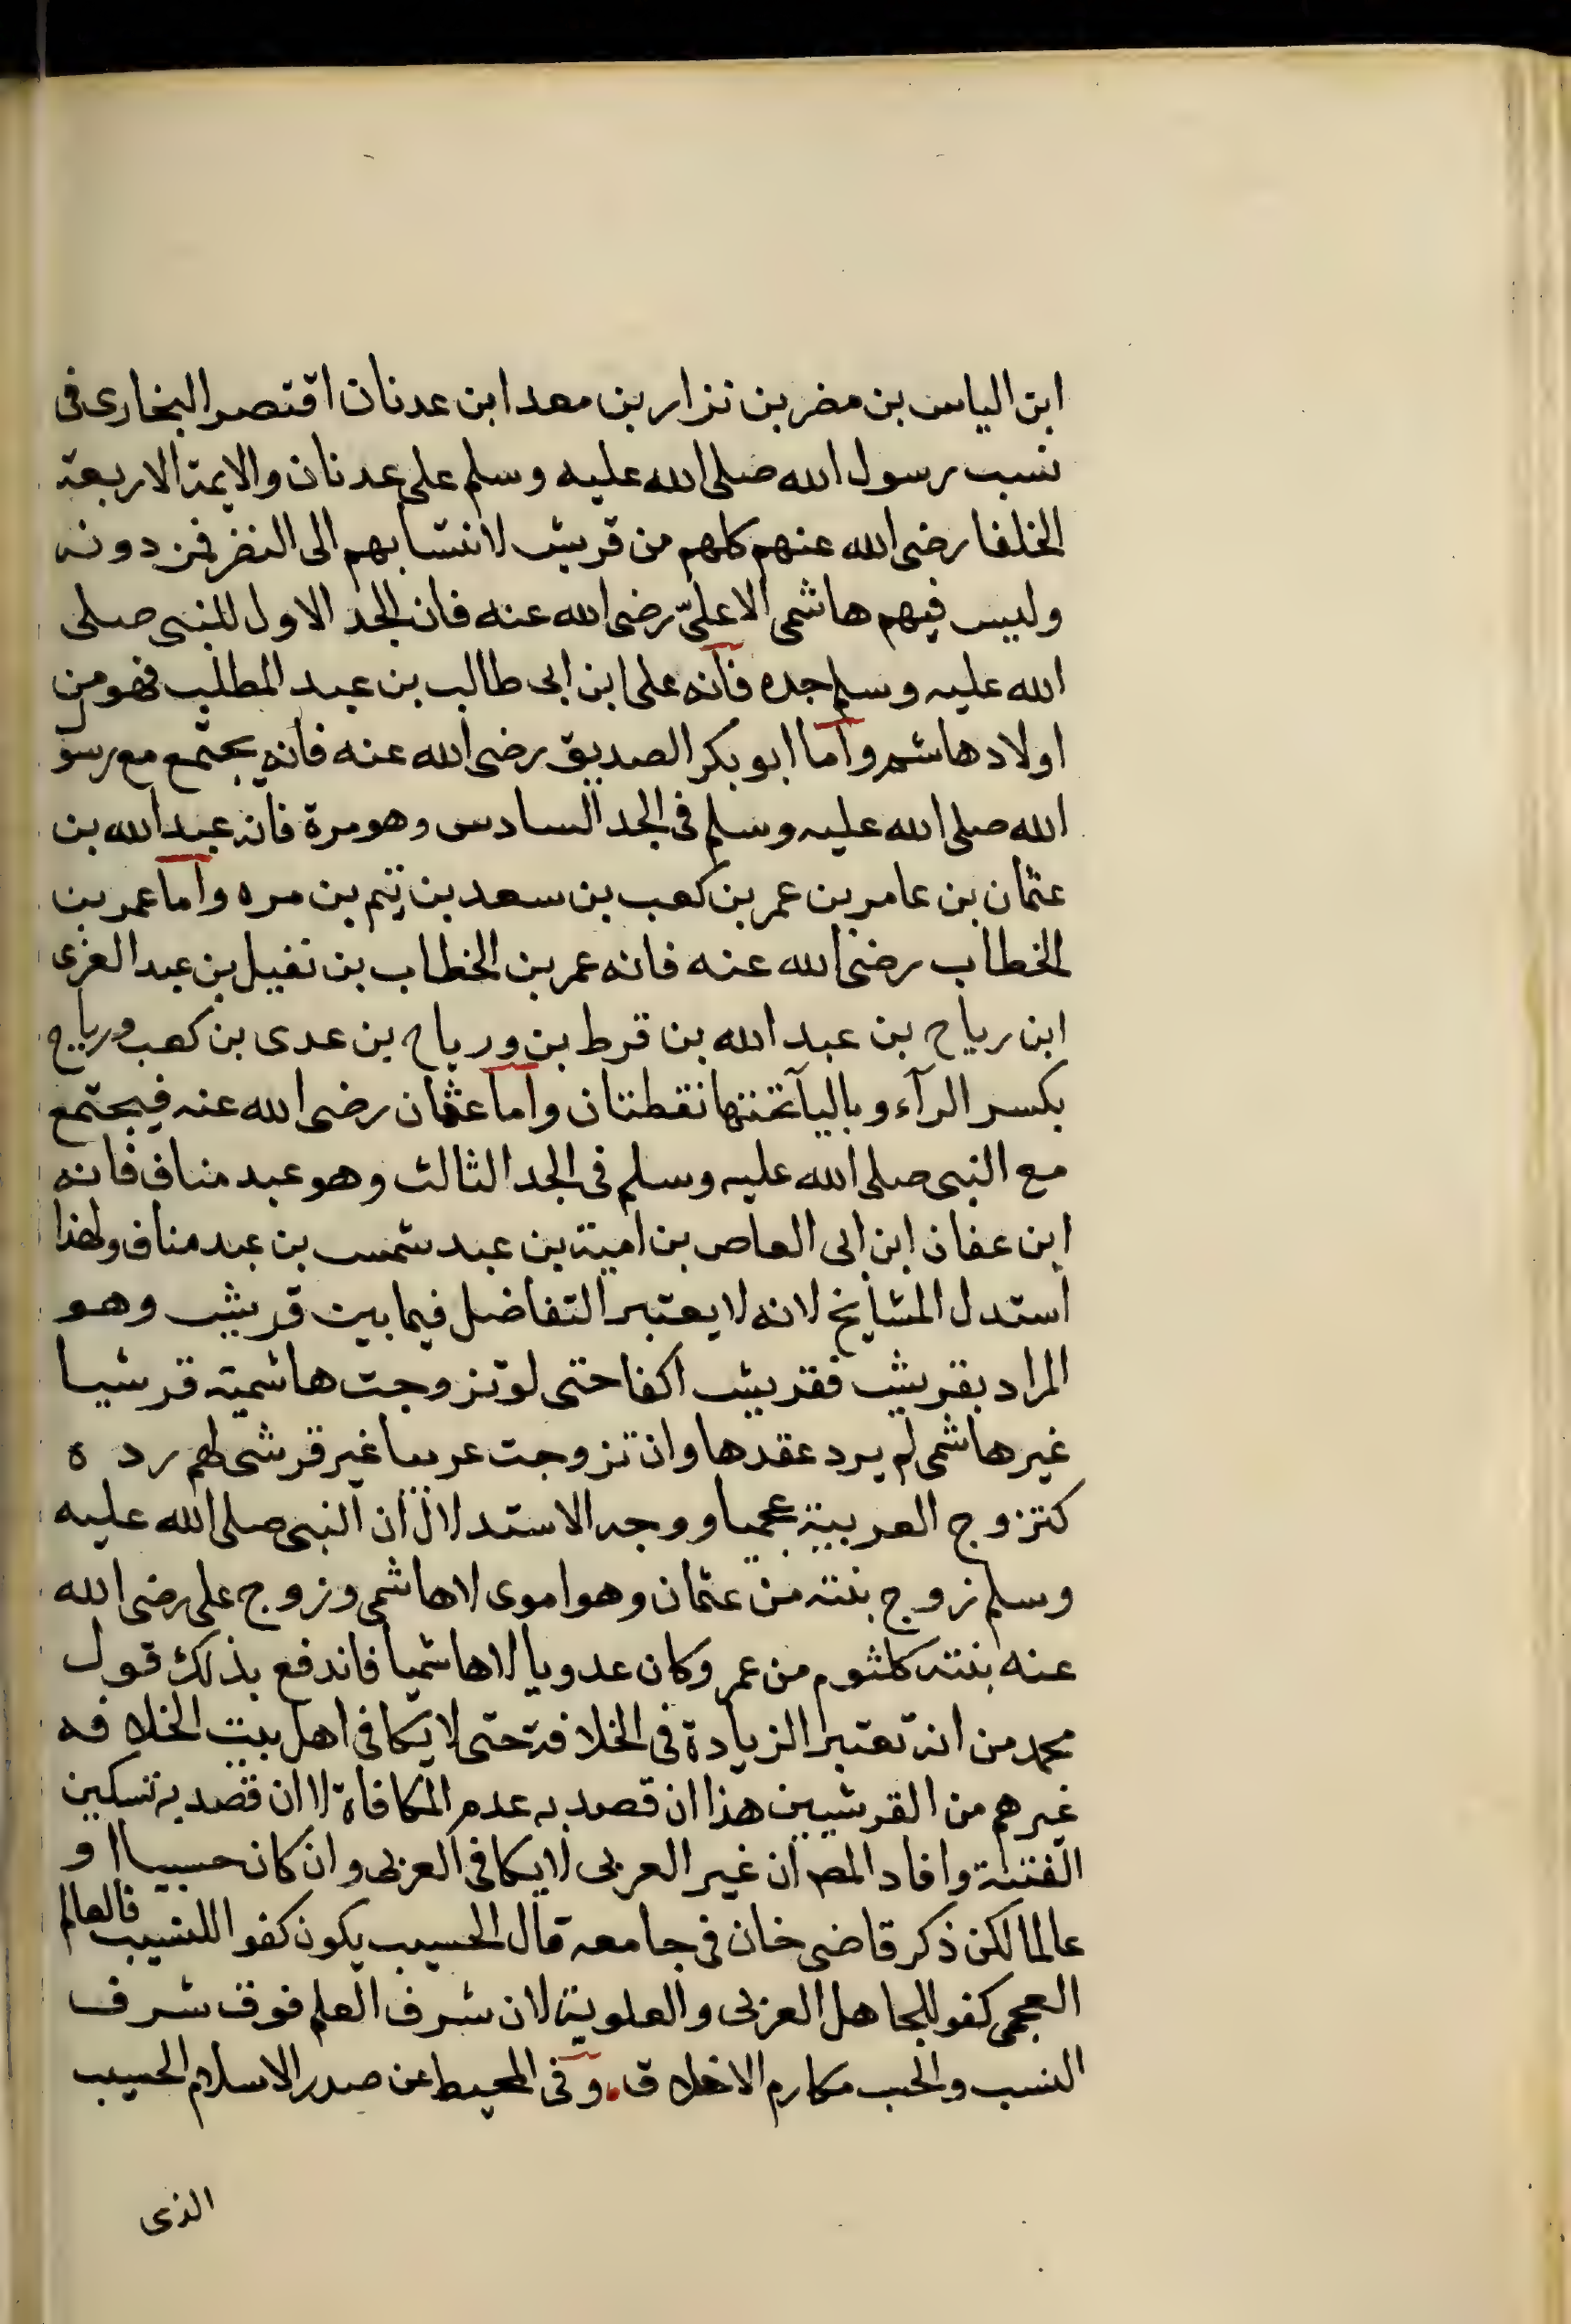 ابن الياس بن مضر بن نزار بن معد ابن عدنان اقتصر البخارى فى
نسب رسول الله صلى الله عليه وسلم على عدنان والايمة الاربعة
الخلفا رضى الله عنهم كلهم من قريش لانتسابهم الى النضر فمن دونه
وليس فيهم هاشمى الا علىّ رضى الله عنه فان الجد الاول للنبى صلى
الله عليه وسلم جده فانه على ابن ابى طالب بن عبد المطلب فهو من
اولاد هاشم واما ابو بكر الصديق رضى الله عنه فانه يجتمع مع رسو
الله صلى الله عليه وسلم فى الجد السادس وهو مرة فانه عبد الله بن
عثمان بن عامر بن عمر بن كعب بن سعد بن تيم بن مره واما عمر بن
الخطاب رضى الله عنه فانه عمر بن الخطاب بن نفيل بن عبد العزى
ابن رياح بن عبد الله بن قرط بن ورياح بن عدى بن كعب ورياح
بكسر الرآء وباليآ تحتها نقطتان واما عثمان رضى الله عنه فيجتمع
مع النبى صلى الله عليه وسلم فى الجد الثالث وهو عبد مناف فانه
ابن عفان ابن ابى العاص بن امية بن عبد شمس بن عبد مناف ولهذا
استدل المشايخ لانه لا يعتبر التفاضل فيما بين قريش وهو
المراد بقريش فقريش اكفا حتى لو تزوجت هاشمية قرشيا
غير هاشمى لم يرد عقدها وان تزوجت عربيا غير قرشى لهم رده
كتزوج العربية عجميا ووجه الاستدلال ان النبى صلى الله عليه
وسلم زوج بنته من عثمان وهو اموى لا هاشمى وزوج على رضى الله
عنه بنته كلثوم من عمر وكان عدويا لا هاشميا فاندفع بذلك قول
محمد من انه تعتبر الزيادة فى الخلافة حتى لا يكافى اهل بيت الخلافه
غيرهم من القرشيين هذا ان قصد به عدم المكافاة لا ان قصد به تسكين
الفتنة وافاد المصر ان غير العربى لا يكافى العربى وان كان حسيبا او
عالما لكن ذكر قاضى خان فى جامعه قال الحسيب يكون كفوا للنسيب فالعالم
العجمى كفو للجاهل العربى والعلوية لان شرف العلم فوق شرف
النسب والحب مكارم الاخلاق وفى المحيط عن صدر الاسلام الحسيب
الذى